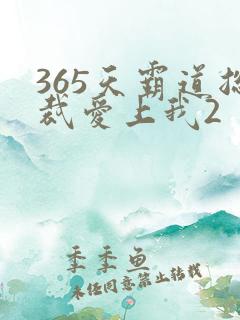 365天霸道总
裁爱上我2
季季鱼
未经同意禁止转载